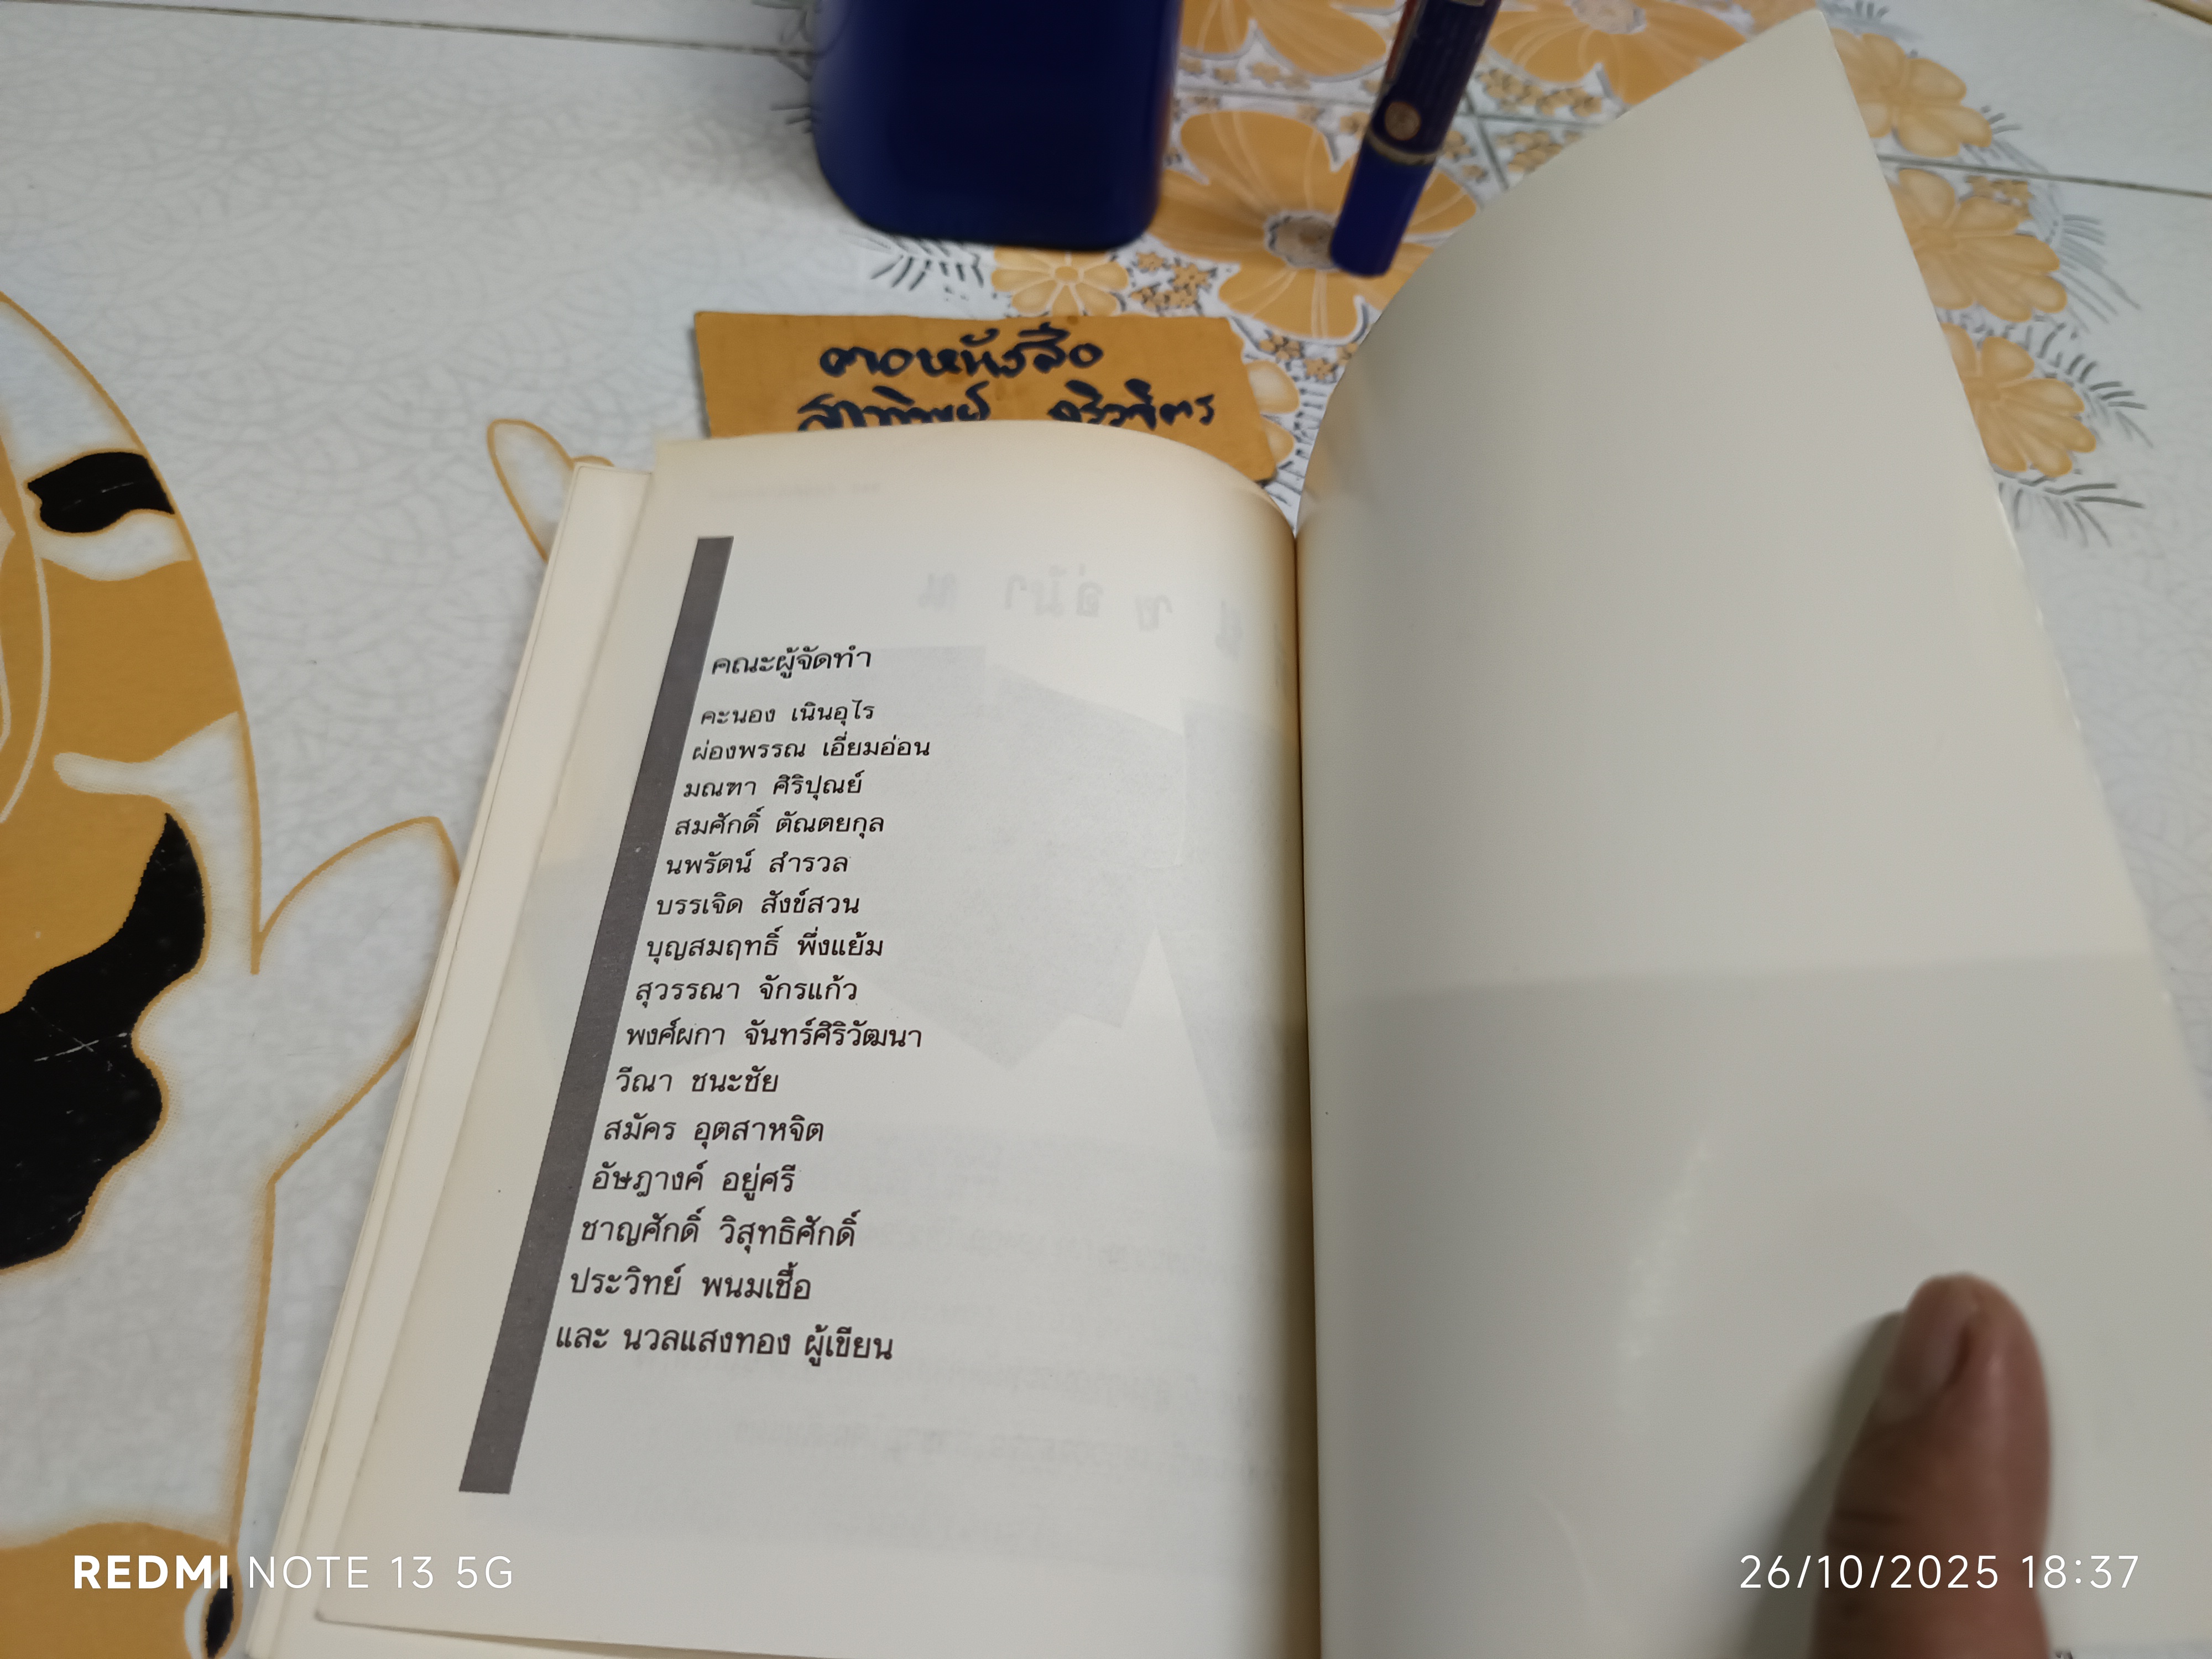 คอหนังสือ
คณะผู้จัดทำ
คะนอง เนินอุไร
ผ่องพรรณ เอี่ยมอ่อน
มณฑา ศิริปุณย์
สมศักดิ์ ตัณตยกุล
นพรัตน์ สำรวล
บรรเจิด สังข์สวน
บุญสมฤทธิ์ พึ่งแย้ม
สุวรรณา จักรแก้ว
พงศ์ผกา จันทร์ศิริวัฒนา
วีณา ชนะชัย
สมัคร อุตสาหจิต
อัษฎางค์ อยู่ศรี
ชาญศักดิ์ วิสุทธิศักดิ์
ประวิทย์ พนมเชื้อ
และ นวลแสงทอง ผู้เขียน
REDMI NOTE 13 5G
26/10/2025 18:37